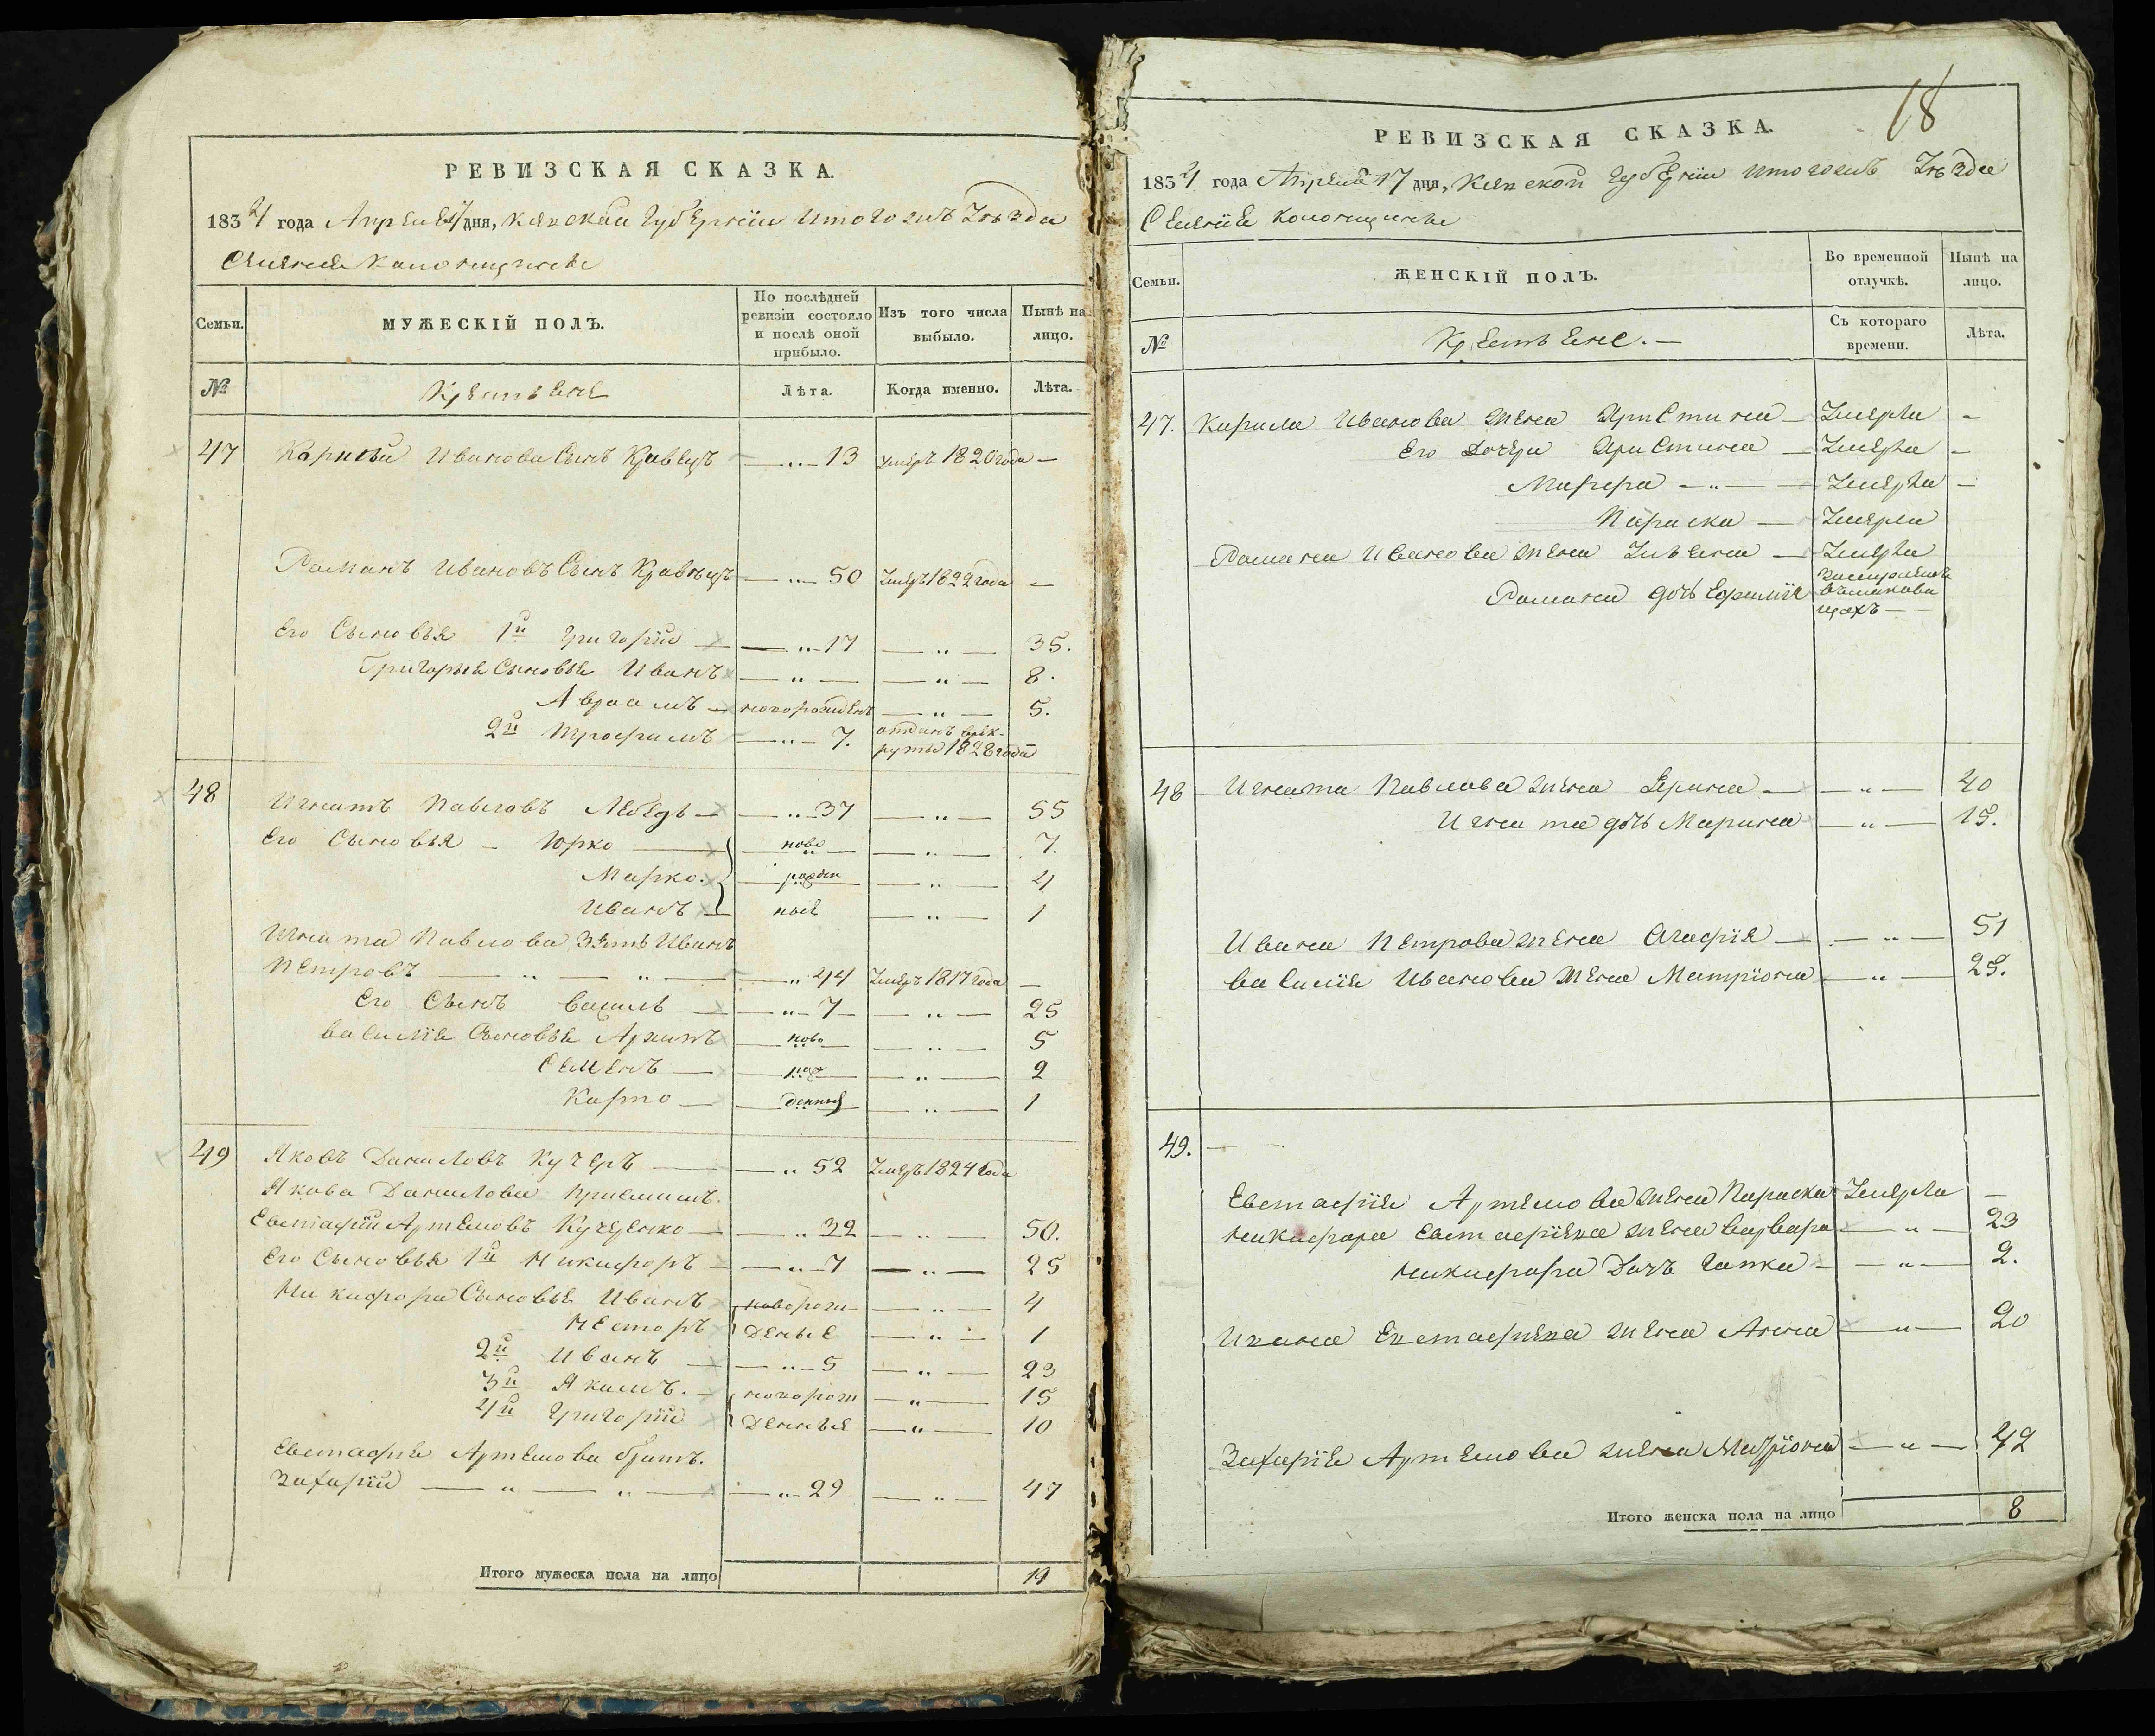 РЕВИЗСКАЯ СКАЗКА.
1834 года Апреля 17 дня, Киевской Губернии Итого имъ Уѣзда
Селения
Семьи.
МУЖЕСКІЙ ПОЛЪ.
По послѣдней ревизіи состояло и послѣ оной прибыло.
Изъ того числа выбыло.
Нынѣ на лицо.
№
Крестьяне
Лѣта.
Когда именно.
Лѣта.
47 Ивановъ Сынъ Кравецъ — 13 умеръ 1820 года —
Романъ Ивановъ Сынъ Кравецъ — 50 Умеръ 1822 года —
Его Сыновья 1й Григорій — 17 — 35.
Григорья Сыновья Иванъ — — 8.
Авраамъ — новорожденъ — 5.
2й Трофимъ — 7. отданъ въ рекруты 1828 года
48 Игнатъ Павловъ Лебедь — 37 — 55
Его Сыновья — Юрко — ново — 7.
Марко. — рожден — 4
Иванъ — ныя — 1
Игната Павлова зять Иванъ
Петровъ — 44 Умеръ 1817 года —
Его Сынъ Василь — 7 — 25
Василія Сыновья Архипъ — ново — 5
Семенъ — рож — 2
Карпо — денныя — 1
49 Яковъ Даниловъ Кучеръ — 52 Умеръ 1824 года
Якова Данилова приемышъ.
Евстафій Артемовъ Кучеренко — 32 — 50.
Его Сыновья 1й Никифоръ — 7 — 25
Никифора Сыновья Иванъ — новорож — 4
Несторъ — денные — 1
2й Иванъ — 5 — 23
3й Якимъ. — новорож — 15
4й Григорій — денныя — 10
Евстафія Артемова братъ.
Захарій — 29 — 47
Итого мужеска пола на лицо 19
18
РЕВИЗСКАЯ СКАЗКА.
1834 года Апреля 17 дня, Киевской Губерніи Уѣзда
Селенія
Семьи.
ЖЕНСКІЙ ПОЛЪ.
Во временной отлучкѣ.
Нынѣ на лицо.
№
Крестьяне. —
Съ котораго времени.
Лѣта.
47. Ивановa жена Христина — Умерла —
Его дочери Христина — Умерла —
— Умерла —
Параска — Умерла
Романа Иванова жена Ульяна — Умерла
Романа дочь
48 Игната Павлова жена — — 40
Игната дочь Марина — 15.
Ивана Петрова жена Агафія — — 51
Василія Иванова жена Матрiона — 25.
49. —
Евстафія Артемова жена Параска Умерла —
Никифора Евстафіева жена Варвара — 23
Никифора Дочь Гапка — — 2.
Ивана Евстафiева жена Анна — 20
Захарія Артемова жена Матріона — 42
Итого женска пола на лицо 8